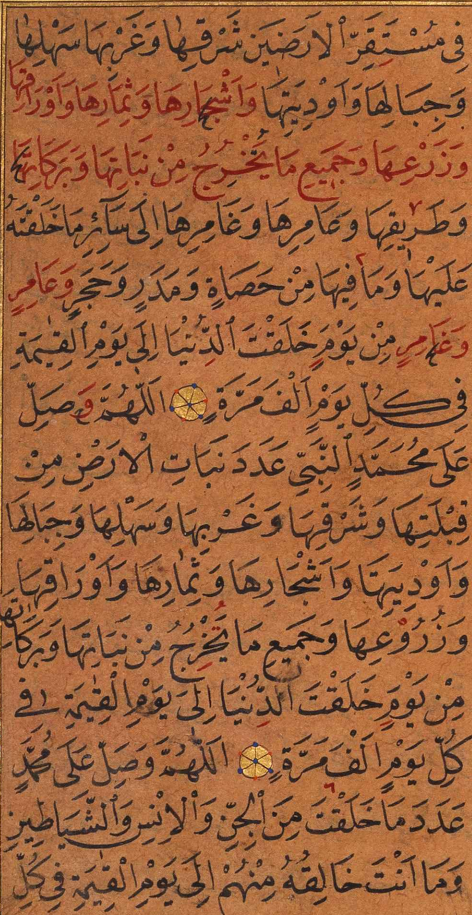 فِي مُسْتَقَرِّ الْاَرَضِينَ شَرْقِهَا وَغَرْبِهَا سَهْلِهَا
وَجِبَالِهَا وَاَوْدِيَتِهَا وَاَشْجَارِهَا وَثِمَارِهَا وَاَوْرَاقِهَا
وَزَرْعِهَا وَجَمِيعِ مَا يَخْرُجُ مِنْ نَبَاتِهَا وَبَرَكَاتِهَا
وَطَرِيقِهَا وَعَامِرِهَا وَغَامِرِهَا اِلَى سَآئِرِ مَا خَلَقْتَهُ
عَلَيْهَا وَمَا فِيهَا مِنْ حَصَاةٍ وَمَدَرٍ وَحَجَرٍ وَعَامِرٍ
وَغَامِرٍ مِنْ يَوْمَ خَلَقْتَ الدُّنْيَا اِلَى يَوْمِ الْقِيٰمَةِ
فِي كُلِّ يَوْمٍ اَلْفَ مَرَّةٍ اَللّٰهُمَّ وَصَلِّ
عَلَى مُحَمَّدٍ النَّبِيِّ عَدَدَ نَبَاتِ الْاَرْضِ مِنْ
قِبْلَتِهَا وَشَرْقِهَا وَغَرْبِهَا وَسَهْلِهَا وَجِبَالِهَا
وَاَوْدِيَتِهَا وَاَشْجَارِهَا وَثِمَارِهَا وَاَوْرَاقِهَا
وَزُرُوْعِهَا وَجَمِيعِ مَا يَخْرُجُ مِنْ نَبَاتِهَا وَبَرَكَاتِهَا
مِنْ يَوْمَ خَلَقْتَ الدُّنْيَا اِلَى يَوْمِ الْقِيٰمَةِ فِي
كُلِّ يَوْمٍ اَلْفَ مَرَّةٍ اَللّٰهُمَّ وَصَلِّ عَلَى مُحَمَّدٍ
عَدَدَ مَا خَلَقْتَ مِنَ الْجِنِّ وَالْاِنْسِ وَالشَّيَاطِينِ
وَمَا اَنْتَ خَالِقُهُ مِنْهُمْ اِلَى يَوْمِ الْقِيٰمَةِ فِي كُلِّ